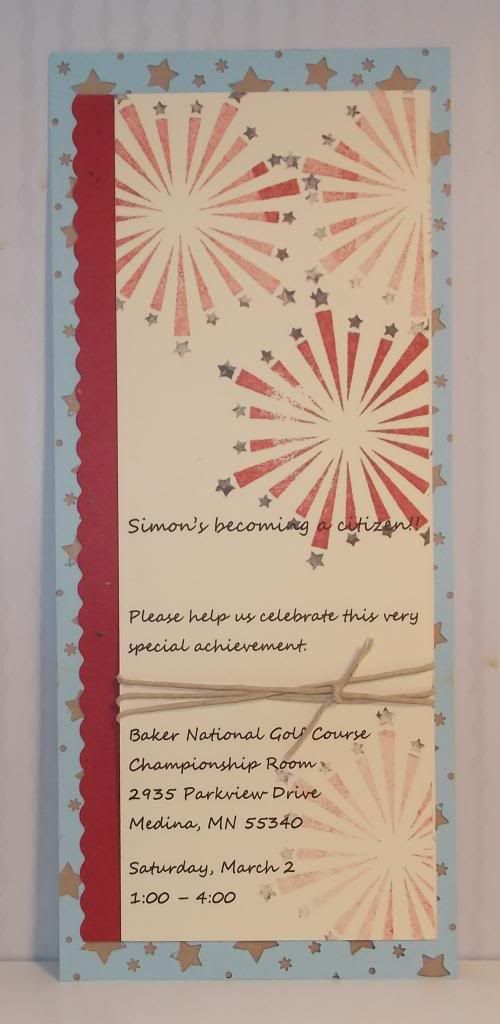 Simon's becoming a citizen!!
Please help us celebrate this very
special achievement.
Baker National Golf Course
Championship Room
2935 Parkview Drive
Medina, MN 55340
Saturday, March 2
1:00 – 4:00